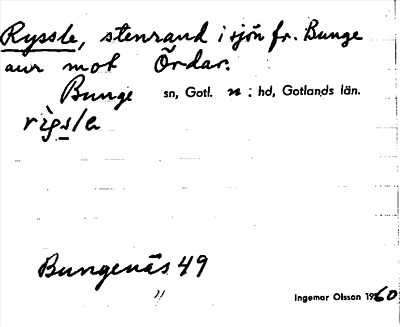 Ryssle, stenrand i sjön fr. Bunge
aur mot Ördar.
Bunge sn, Gotl. n. hd, Gotlands län.
rìgs/e
Bungenäs 49
"
Ingemar Olsson 1960